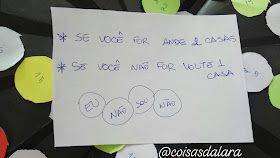 * SE VOCÊ FOR ANDE 2 CASAS
* SE VOCÊ NÃO FOR VOLTE 1
CASA
EU NÃO SOU NÃO
@coisasdalara